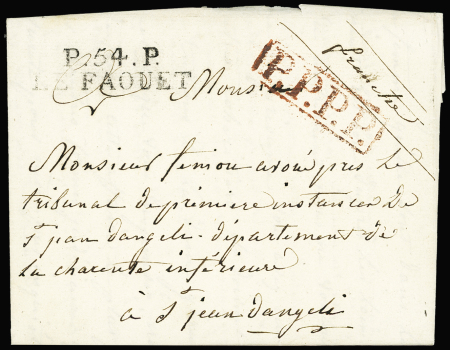 P.54.P.
LE FAOUET
Monsieur
P.P.P.P.
franche
Monsieur feniou avoué pres le
tribunal de première instance de
St jean dangeli - département de
la charente inférieure
à St jean dangeli